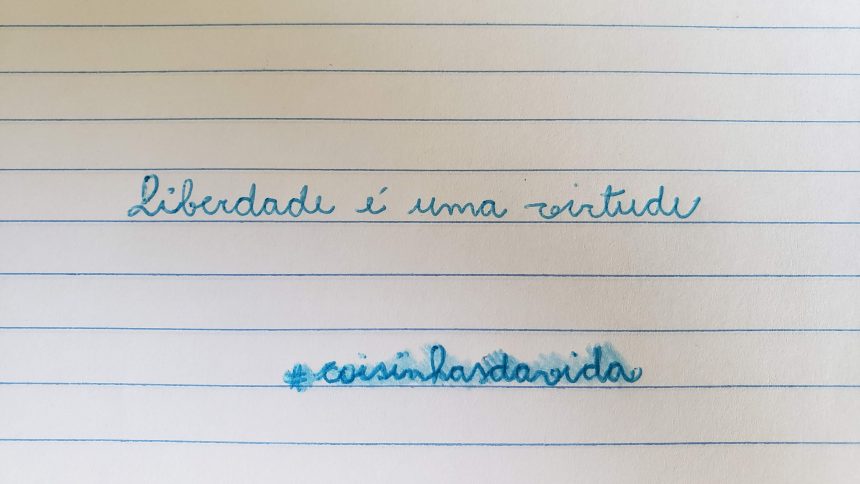 Liberdade é uma virtude
#coisinhasdavida